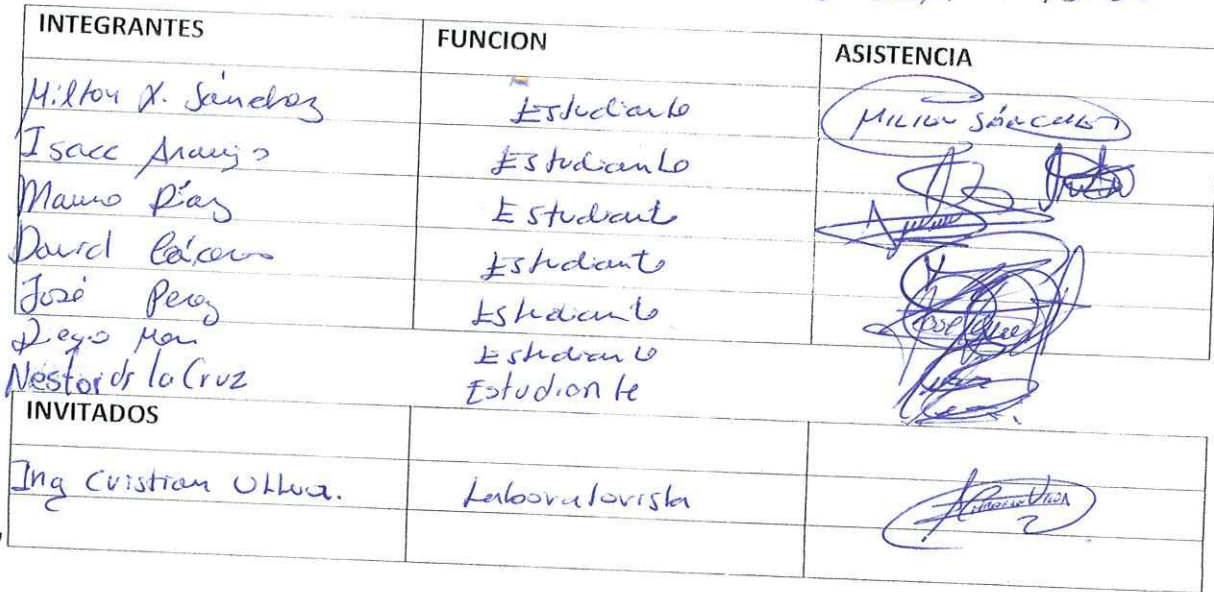 INTEGRANTES FUNCION ASISTENCIA
Milton X. Sánchez Estudiante MILTON SÁNCHEZ
Isacc Araujo Estudiante
Mauro Díaz Estudiante
David Cáceres Estudiante
José Perez Estudiante
Diego Estudiante
Nestor de la Cruz Estudiante
INVITADOS
Ing Cristian Ulloa. Laboratorista